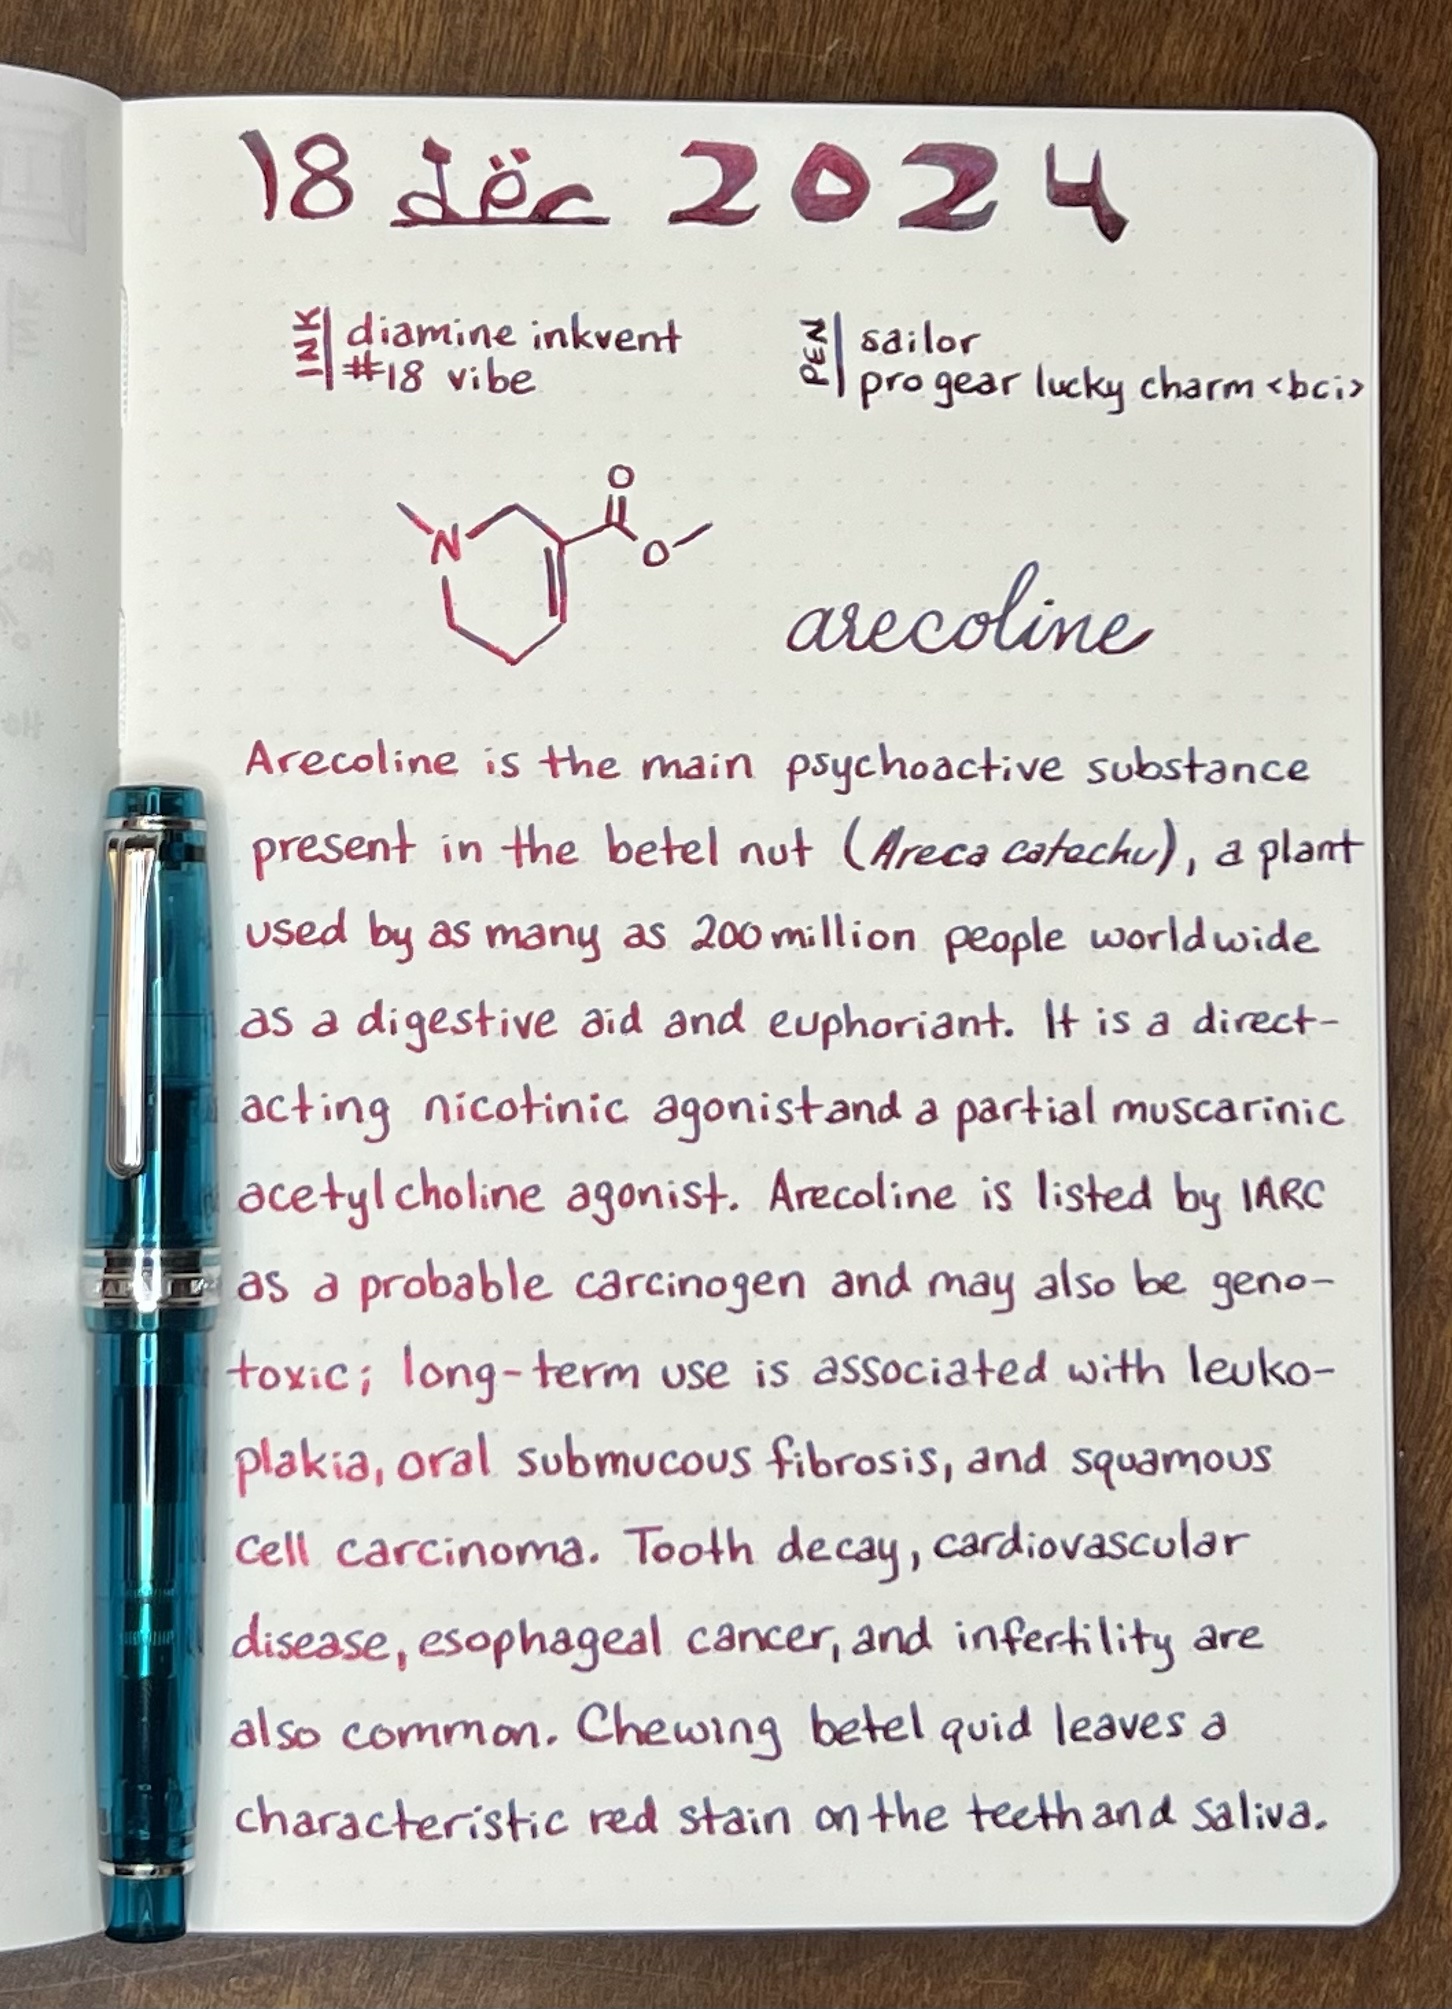 18 dëc 2024
INK
diamine inkvent
#18 vibe
PEN
sailor
pro gear lucky charm <bci>
O
N
O
arecoline
Arecoline is the main psychoactive substance
present in the betel nut (Areca catechu), a plant
used by as many as 200 million people worldwide
as a digestive aid and euphoriant. It is a direct-
acting nicotinic agonist and a partial muscarinic
acetylcholine agonist. Arecoline is listed by IARC
as a probable carcinogen and may also be geno-
toxic; long-term use is associated with leuko-
plakia, oral submucous fibrosis, and squamous
cell carcinoma. Tooth decay, cardiovascular
disease, esophageal cancer, and infertility are
also common. Chewing betel quid leaves a
characteristic red stain on the teeth and saliva.